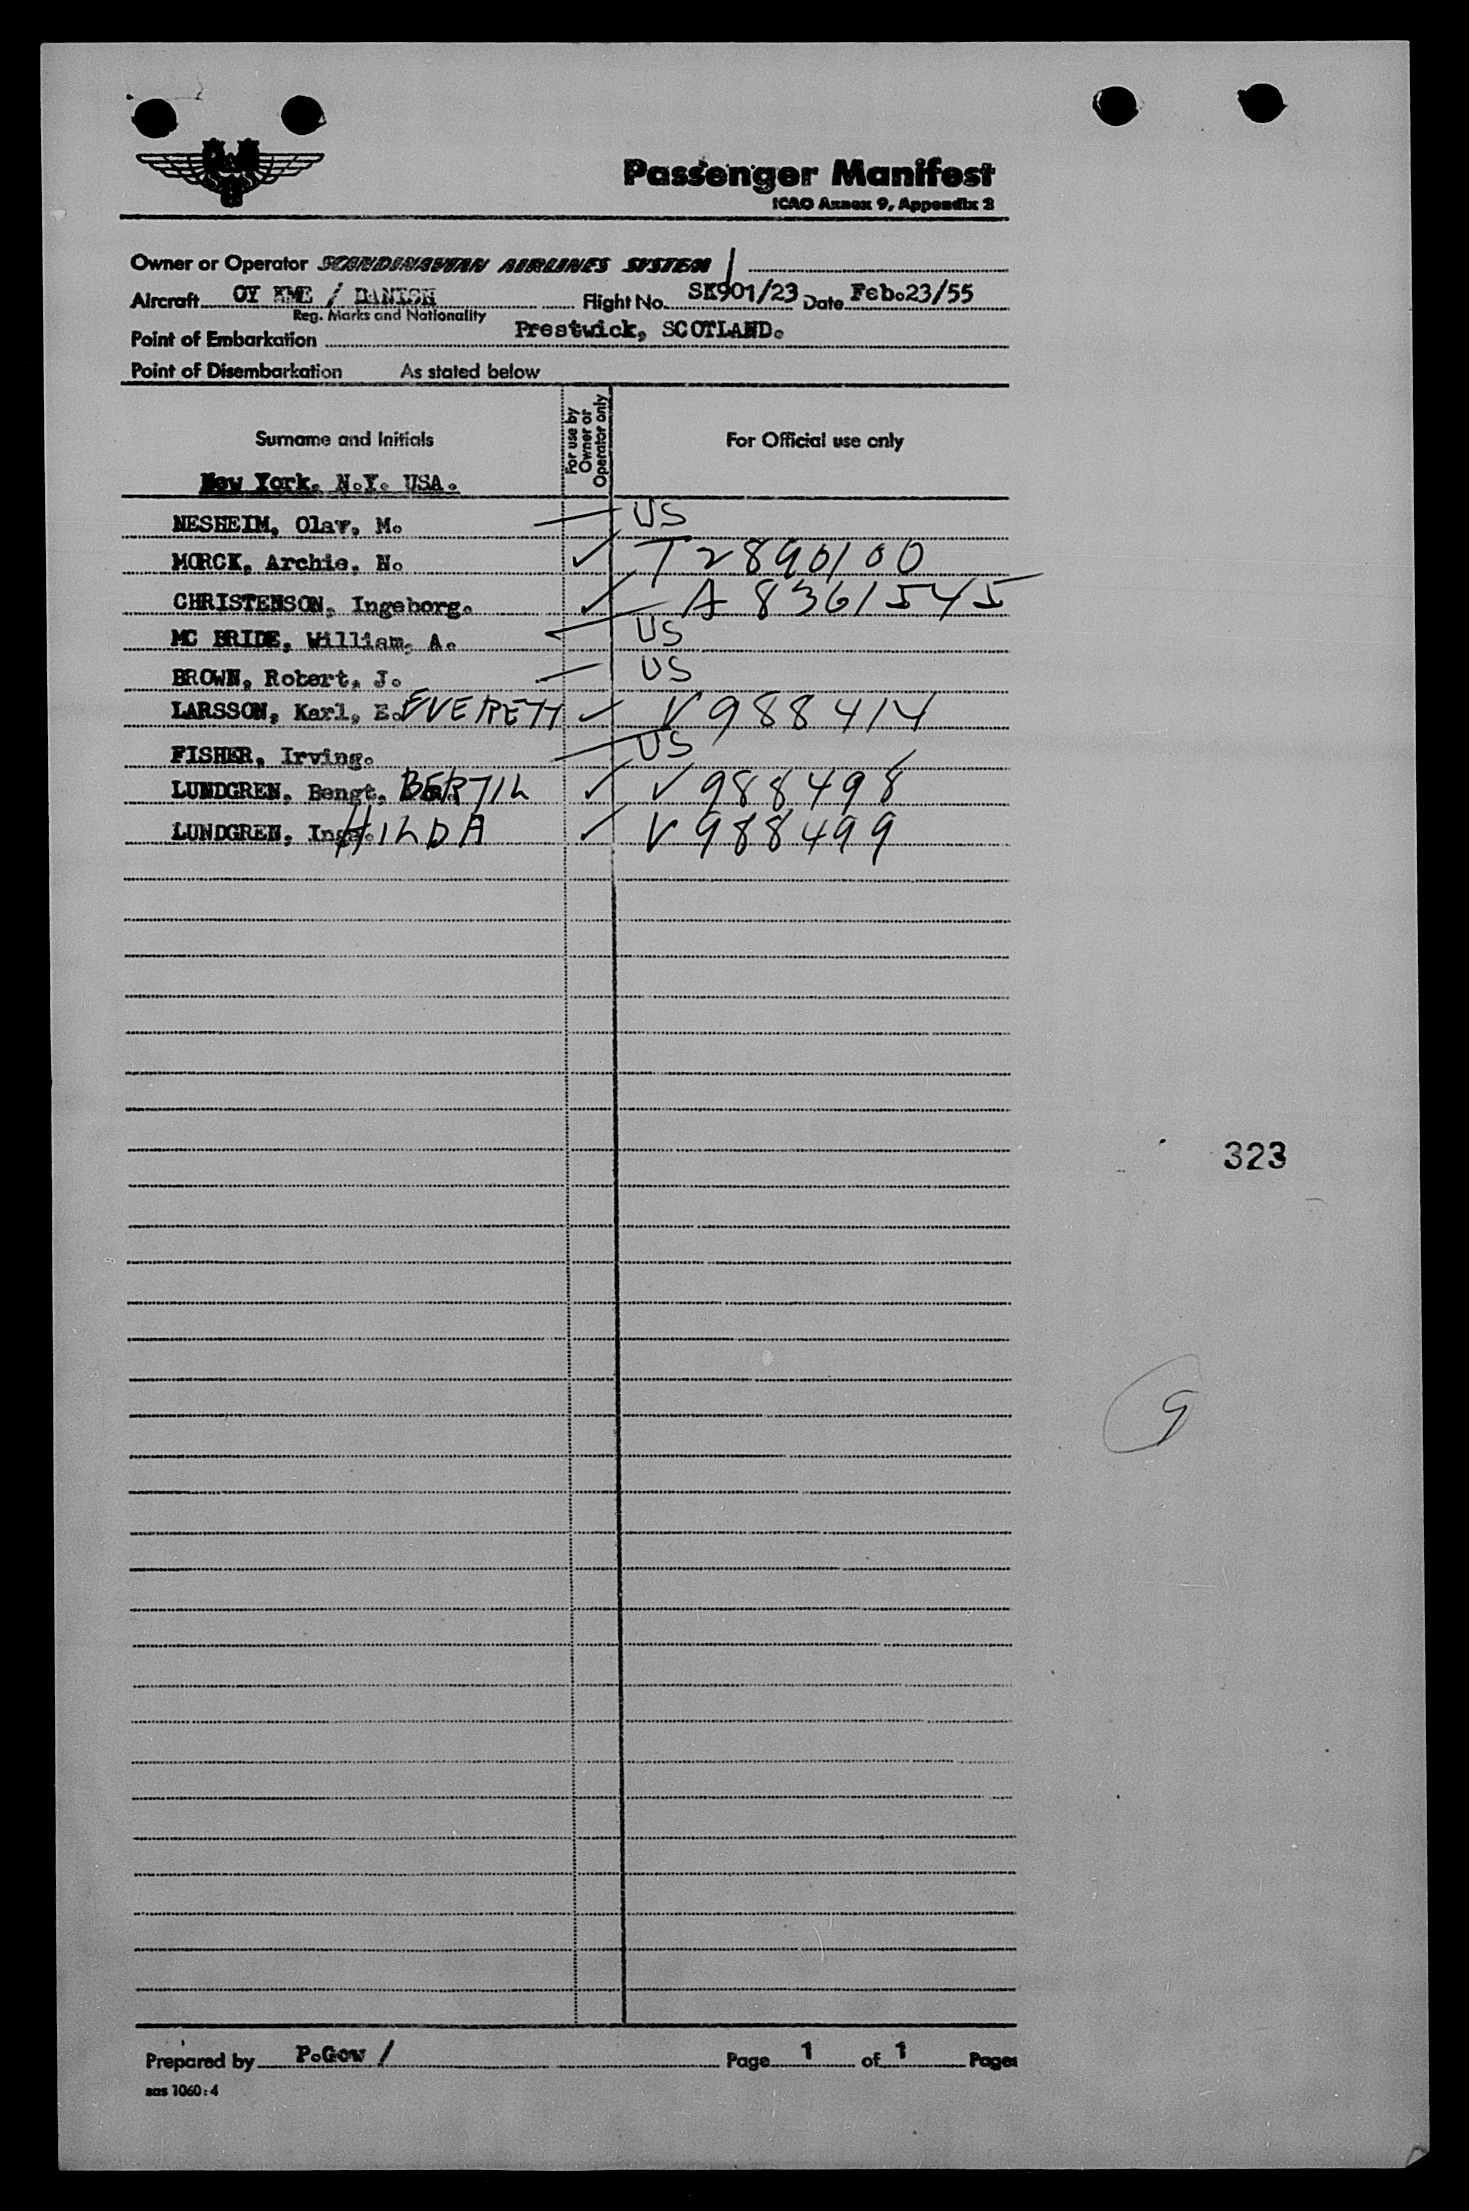 Passenger Manifest
ICAO Annex 9, Appendix 2
Owner or Operator SCANDINAVIAN AIRLINES SYSTEM /
Aircraft OY KME / DANISH Flight No. SK901/23 Date Feb.23/55
Reg. Marks and Nationality
Point of Embarkation Prestwick, SCOTLAND.
Point of Disembarkation As stated below
Surname and Initials For use by Owner or Operator only For Official use only
New York. N.Y. USA.
NESHEIM, Olav, M. US
MORCK, Archie, N. ✓ T2890100
CHRISTENSON, Ingeborg. ✓ A8361545
MC BRIDE, William, A. US
BROWN, Robert, J. US
LARSSON, Karl, E. EVERETT ✓ V988414
FISHER, Irving. US
LUNDGREN, Bengt, BERTIL ✓ V988498
LUNDGREN, Inga. HILDA ✓ V988499
323
9
Prepared by P.Gow / Page 1 of 1 Pages
sas 1060:4